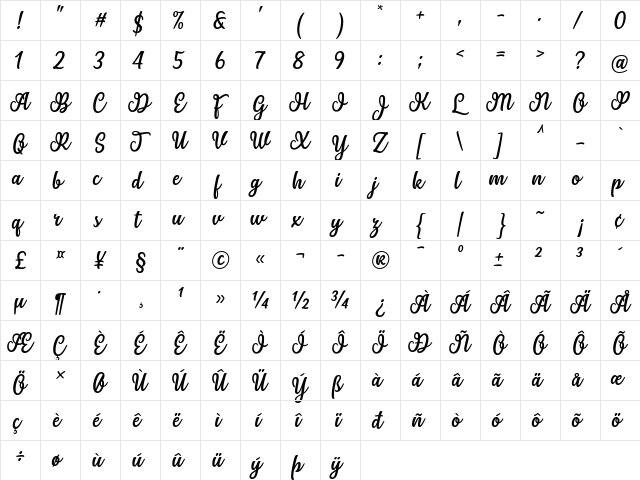 ! " # $ % & ' ( ) * + , - . / 0
1 2 3 4 5 6 7 8 9 : ; < = > ? @
A B C D E F G H I J K L M N O P
Q R S T U V W X Y Z [ \ ] ^ _ `
a b c d e f g h i j k l m n o p
q r s t u v w x y z { | } ~ ¡ ¢
£ ¤ ¥ § ¨ © « ¬ - ® ¯ º ± ² ³ ´
µ ¶ · ¸ ¹ » ¼ ½ ¾ ¿ À Á Â Ã Ä Å
Æ Ç È É Ê Ë Ì Í Î Ï Ð Ñ Ò Ó Ô Õ
Ö × Ø Ù Ú Û Ü Ý ß à á â ã ä å æ
ç è é ê ë ì í î ï đ ñ ò ó ô õ ö
÷ ø ù ú û ü ý þ ÿ